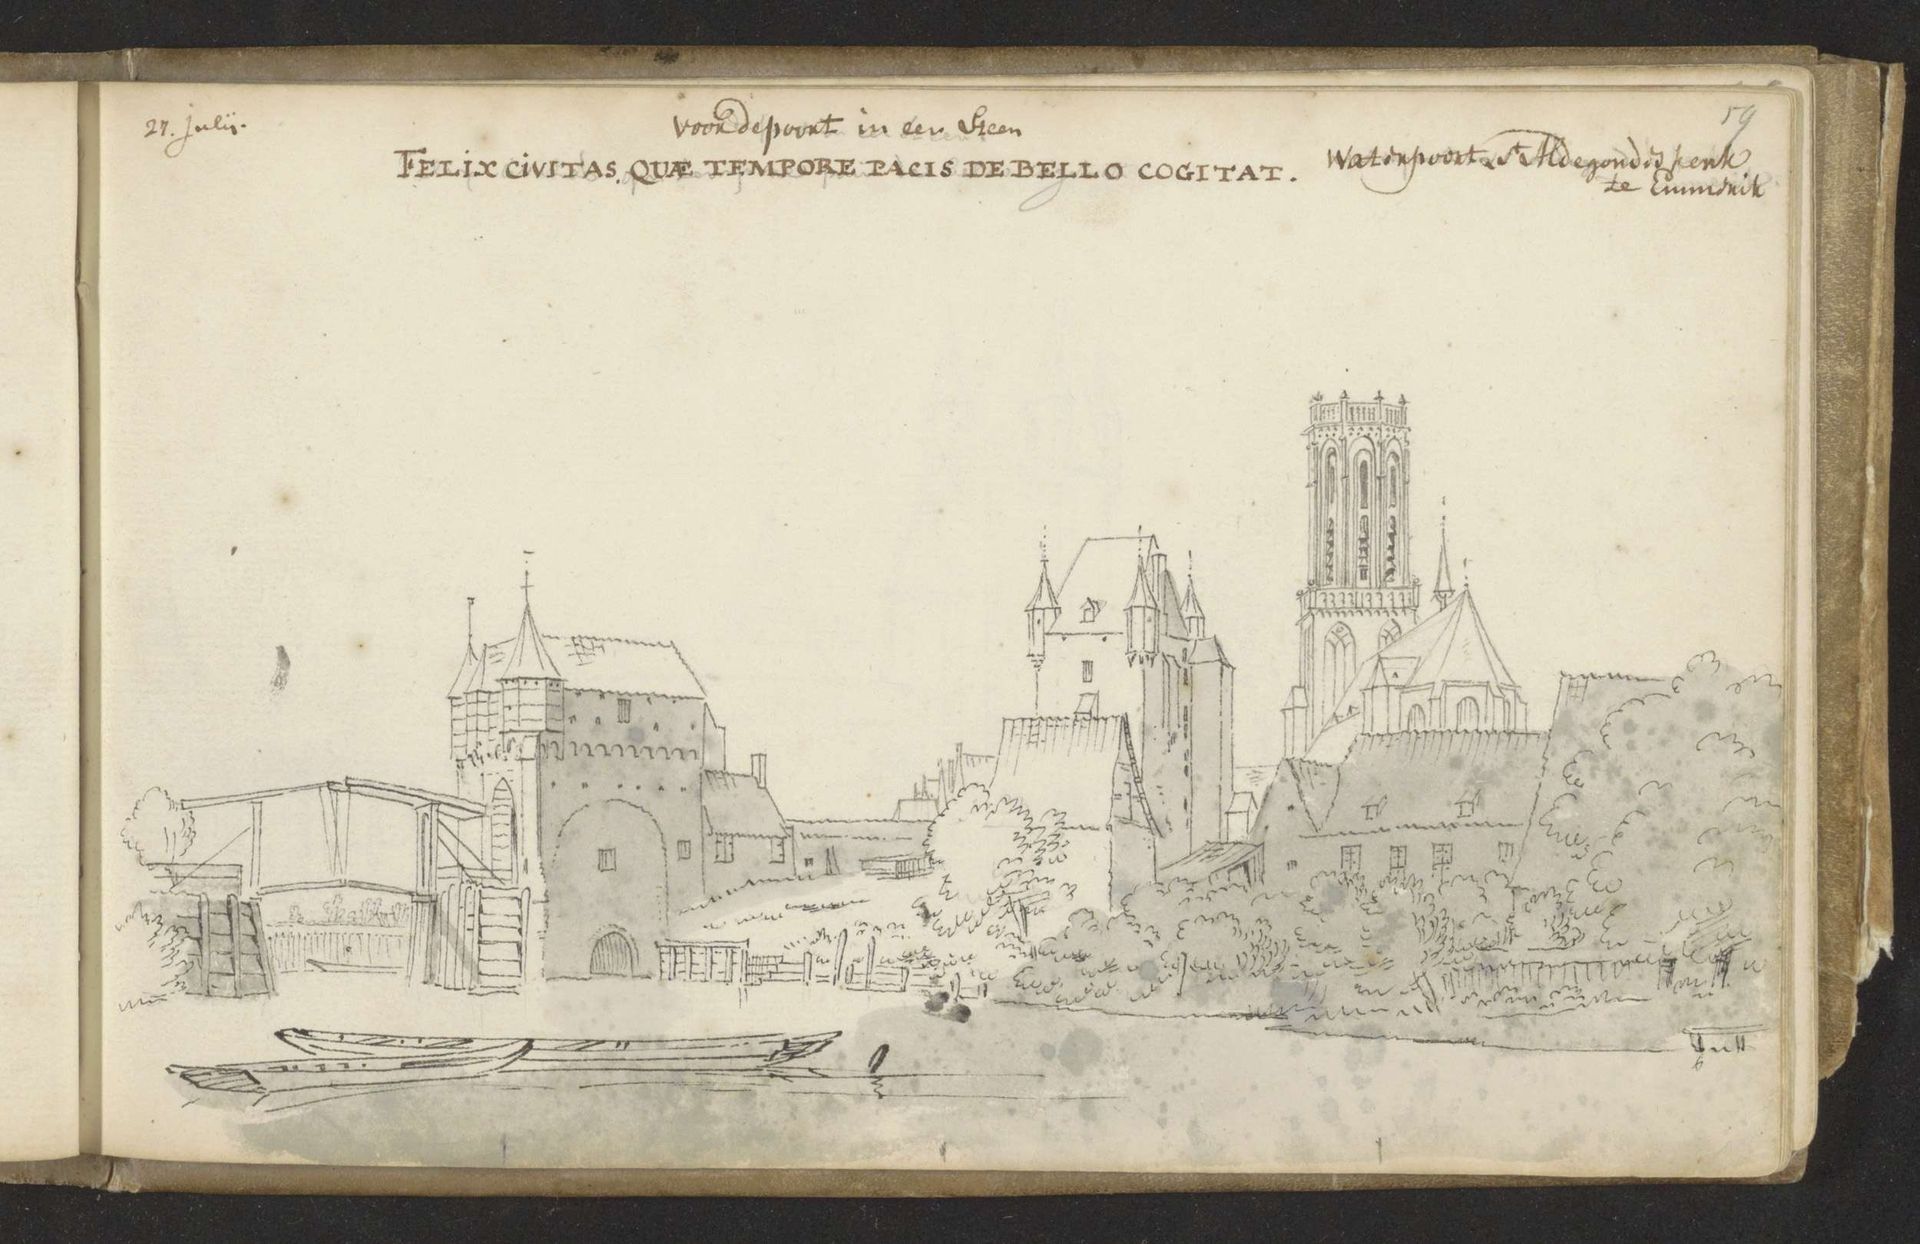 27. julij.
voor de poort in een Steen
59
FELIX CIVITAS. QUÆ TEMPORE PACIS DE BELLO COGITAT.
Waterpoort & St Aldegondis kerk
te Emmerik